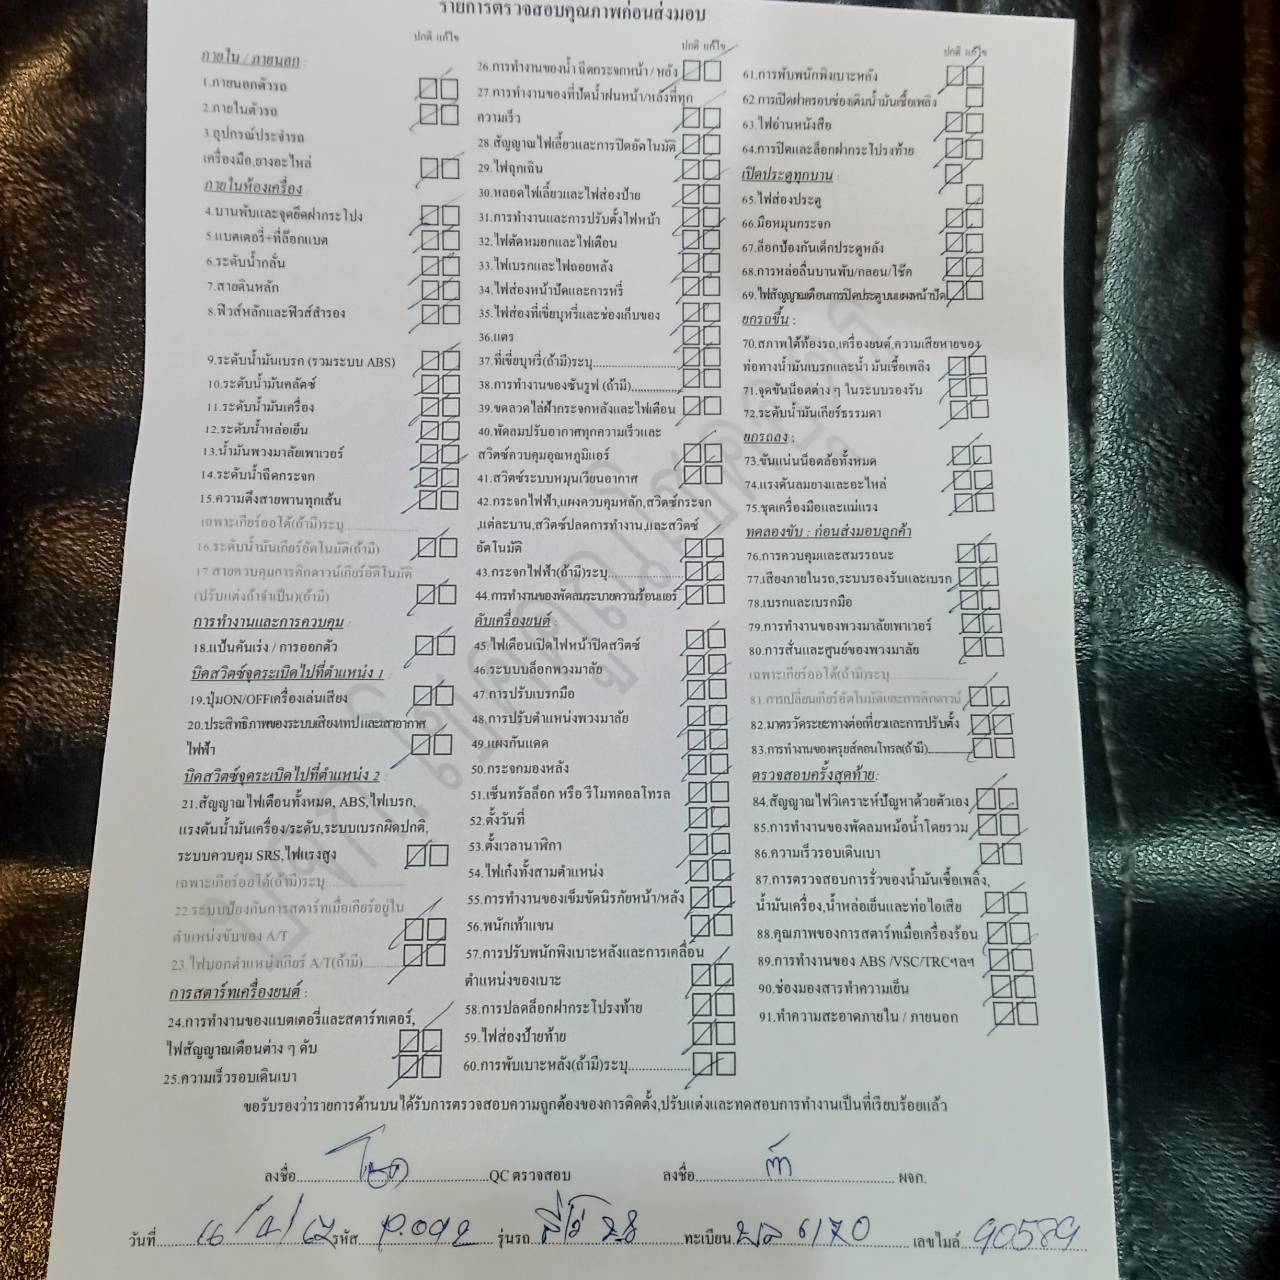 รายการตรวจสอบคุณภาพก่อนส่งมอบ
ปกติ แก้ไข
ภายใน / ภายนอก :
1.ภายนอกตัวรถ
2.ภายในตัวรถ
3.อุปกรณ์ประจำรถ
เครื่องมือ,ยางอะไหล่
ภายในห้องเครื่อง
4.บานพับและจุดยึดฝากระโปรง
5.แบตเตอรี่+ที่ล๊อกแบต
6.ระดับน้ำกลั่น
7.สายดินหลัก
8.ฟิวส์หลักและฟิวส์สำรอง
9.ระดับน้ำมันเบรก (รวมระบบ ABS)
10.ระดับน้ำมันคลัตช์
11.ระดับน้ำมันเครื่อง
12.ระดับน้ำหล่อเย็น
13.น้ำมันพวงมาลัยเพาเวอร์
14.ระดับน้ำฉีดกระจก
15.ความตึงสายพานทุกเส้น
เฉพาะเกียร์ออโต้(ถ้ามี)ระบุ
16.ระดับน้ำมันเกียร์อัตโนมัติ(ถ้ามี)
17.สายควบคุมการคิกดาวน์เกียร์อัติโนมัติ
(ปรับแต่งถ้าจำเป็น)(ถ้ามี)
การทำงานและการควบคุม :
18.แป้นคันเร่ง / การออกตัว
บิดสวิตซ์จุดระเบิดไปที่ตำแหน่ง 1
19.ปุ่มON/OFFเครื่องเล่นเสียง
20.ประสิทธิภาพของระบบเสียง/เทป และเสาอากาศ
ไฟฟ้า
บิดสวิตซ์จุดระเบิดไปที่ตำแหน่ง 2
21.สัญญาณไฟเตือนทั้งหมด, ABS,ไฟเบรก,
แรงดันน้ำมันเครื่อง/ระดับ,ระบบเบรกผิดปกติ,
ระบบควบคุม SRS,ไฟแรงสูง
เฉพาะเกียร์ออโต้(ถ้ามี)ระบุ
22.ระบบป้องกันการสตาร์ทเมื่อเกียร์อยู่ใน
ตำแหน่งขับของ A/T
23.ไฟบอกตำแหน่งเกียร์ A/T(ถ้ามี)
การสตาร์ทเครื่องยนต์ :
24.การทำงานของแบตเตอรี่และสตาร์ทเตอร์,
ไฟสัญญาณเตือนต่าง ๆ ดับ
25.ความเร็วรอบเดินเบา
ปกติ แก้ไข
26.การทำงานของน้ำ ฉีดกระจกหน้า / หลัง
27.การทำงานของที่ปัดน้ำฝนหน้า/หลังที่ทุก
ความเร็ว
28.สัญญาณไฟเลี้ยวและการปิดอัตโนมัติ
29.ไฟฉุกเฉิน
30.หลอดไฟเลี้ยวและไฟส่องป้าย
31.การทำงานและการปรับตั้งไฟหน้า
32.ไฟตัดหมอกและไฟเตือน
33.ไฟเบรกและไฟถอยหลัง
34.ไฟส่องหน้าปัดและการหรี่
35.ไฟส่องที่เขี่ยบุหรี่และช่องเก็บของ
36.แตร
37.ที่เขี่ยบุหรี่(ถ้ามี)ระบุ
38.การทำงานของซันรูฟ (ถ้ามี)
39.ขดลวดไล่ฝ้ากระจกหลังและไฟเตือน
40.พัดลมปรับอากาศทุกความเร็วและ
สวิตซ์ควบคุมอุณหภูมิแอร์
41.สวิตซ์ระบบหมุนเวียนอากาศ
42.กระจกไฟฟ้า,แผงควบคุมหลัก,สวิตซ์กระจก
,แต่ละบาน,สวิตซ์ปลดการทำงาน,และสวิตซ์
อัตโนมัติ
43.กระจกไฟฟ้า(ถ้ามี)ระบุ
44.การทำงานของพัดลมระบายความร้อนแอร์
ดับเครื่องยนต์ :
45.ไฟเตือนเปิดไฟหน้าปิดสวิตซ์
46.ระบบบล็อกพวงมาลัย
47.การปรับเบรกมือ
48.การปรับตำแหน่งพวงมาลัย
49.แผงกันแดด
50.กระจกมองหลัง
51.เซ็นทรัลล็อก หรือ รีโมทคอลโทรล
52.ตั้งวันที่
53.ตั้งเวลานาฬิกา
54.ไฟเก๋งทั้งสามตำแหน่ง
55.การทำงานของเข็มขัดนิรภัยหน้า/หลัง
56.พนักเท้าแขน
57.การปรับพนักพิงเบาะหลังและการเคลื่อน
ตำแหน่งของเบาะ
58.การปลดล็อกฝากระโปรงท้าย
59.ไฟส่องป้ายท้าย
60.การพับเบาะหลัง(ถ้ามี)ระบุ
ปกติ แก้ไข
61.การพับพนักพิงเบาะหลัง
62.การเปิดฝาครอบช่องเติมน้ำมันเชื้อเพลิง
63.ไฟอ่านหนังสือ
64.การปิดและล็อกฝากระโปรงท้าย
เปิดประตูทุกบาน :
65.ไฟส่องประตู
66.มือหมุนกระจก
67.ล็อกป้องกันเด็กประตูหลัง
68.การหล่อลื่นบานพับ/กลอน/โช๊ค
69.ไฟสัญญาณเตือนการปิดประตูบนแผงหน้าปัด
ยกรถขึ้น :
70.สภาพใต้ท้องรถ,เครื่องยนต์,ความเสียหายของ
ท่อทางน้ำมันเบรกและน้ำ มันเชื้อเพลิง
71.จุดขันน็อตต่าง ๆ ในระบบรองรับ
72.ระดับน้ำมันเกียร์ธรรมดา
ยกรถลง :
73.ขันแน่นน็อตล้อทั้งหมด
74.แรงดันลมยางและอะไหล่
75.ชุดเครื่องมือและแม่แรง
ทดลองขับ : ก่อนส่งมอบลูกค้า
76.การควบคุมและสมรรถนะ
77.เสียงภายในรถ,ระบบรองรับและเบรก
78.เบรกและเบรกมือ
79.การทำงานของพวงมาลัยเพาเวอร์
80.การสั่นและศูนย์ของพวงมาลัย
เฉพาะเกียร์ออโต้(ถ้ามี)ระบุ
81.การเปลี่ยนเกียร์อัตโนมัติและการคิกดาวน์
82.มาตรวัดระยะทางต่อเที่ยวและการปรับตั้ง
83.การทำงานของครุยส์คอนโทรล(ถ้ามี)
ตรวจสอบครั้งสุดท้าย:
84.สัญญาณไฟวิเคราะห์ปัญหาด้วยตัวเอง
85.การทำงานของพัดลมหม้อน้ำโดยรวม
86.ความเร็วรอบเดินเบา
87.การตรวจสอบการรั่วของน้ำมันเชื้อเพลิง,
น้ำมันเครื่อง,น้ำหล่อเย็นและท่อไอเสีย
88.คุณภาพของการสตาร์ทเมื่อเครื่องร้อน
89.การทำงานของ ABS /VSC/TRCฯลฯ
90.ช่องมองสารทำความเย็น
91.ทำความสะอาดภายใน / ภายนอก
ขอรับรองว่ารายการด้านบนได้รับการตรวจสอบความถูกต้องของการติดตั้ง,ปรับแต่งและทดสอบการทำงานเป็นที่เรียบร้อยแล้ว
ลงชื่อ QC ตรวจสอบ ลงชื่อ ผจก.
วันที่ 16/4/67 รหัส P.092 รุ่นรถ รีโว่ 2.8 ทะเบียน 6170 เลขไมล์ 90589